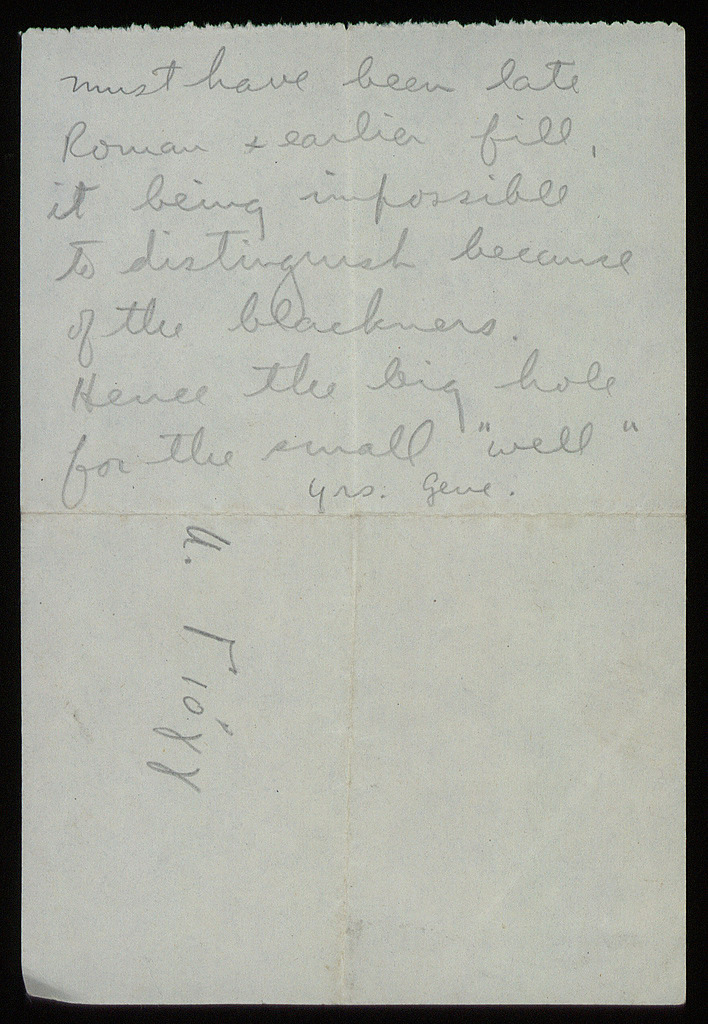 must have been late
Roman & earlier fill,
it being impossible
to distinguish because
of the blackness.
Hence the big hole
for the small "well"
yrs. Gene.